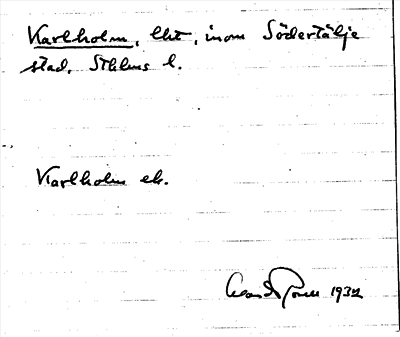 Karlholm, lht, inom Södertälje
stad, Sthlms l.
Karlholm ek.
1932